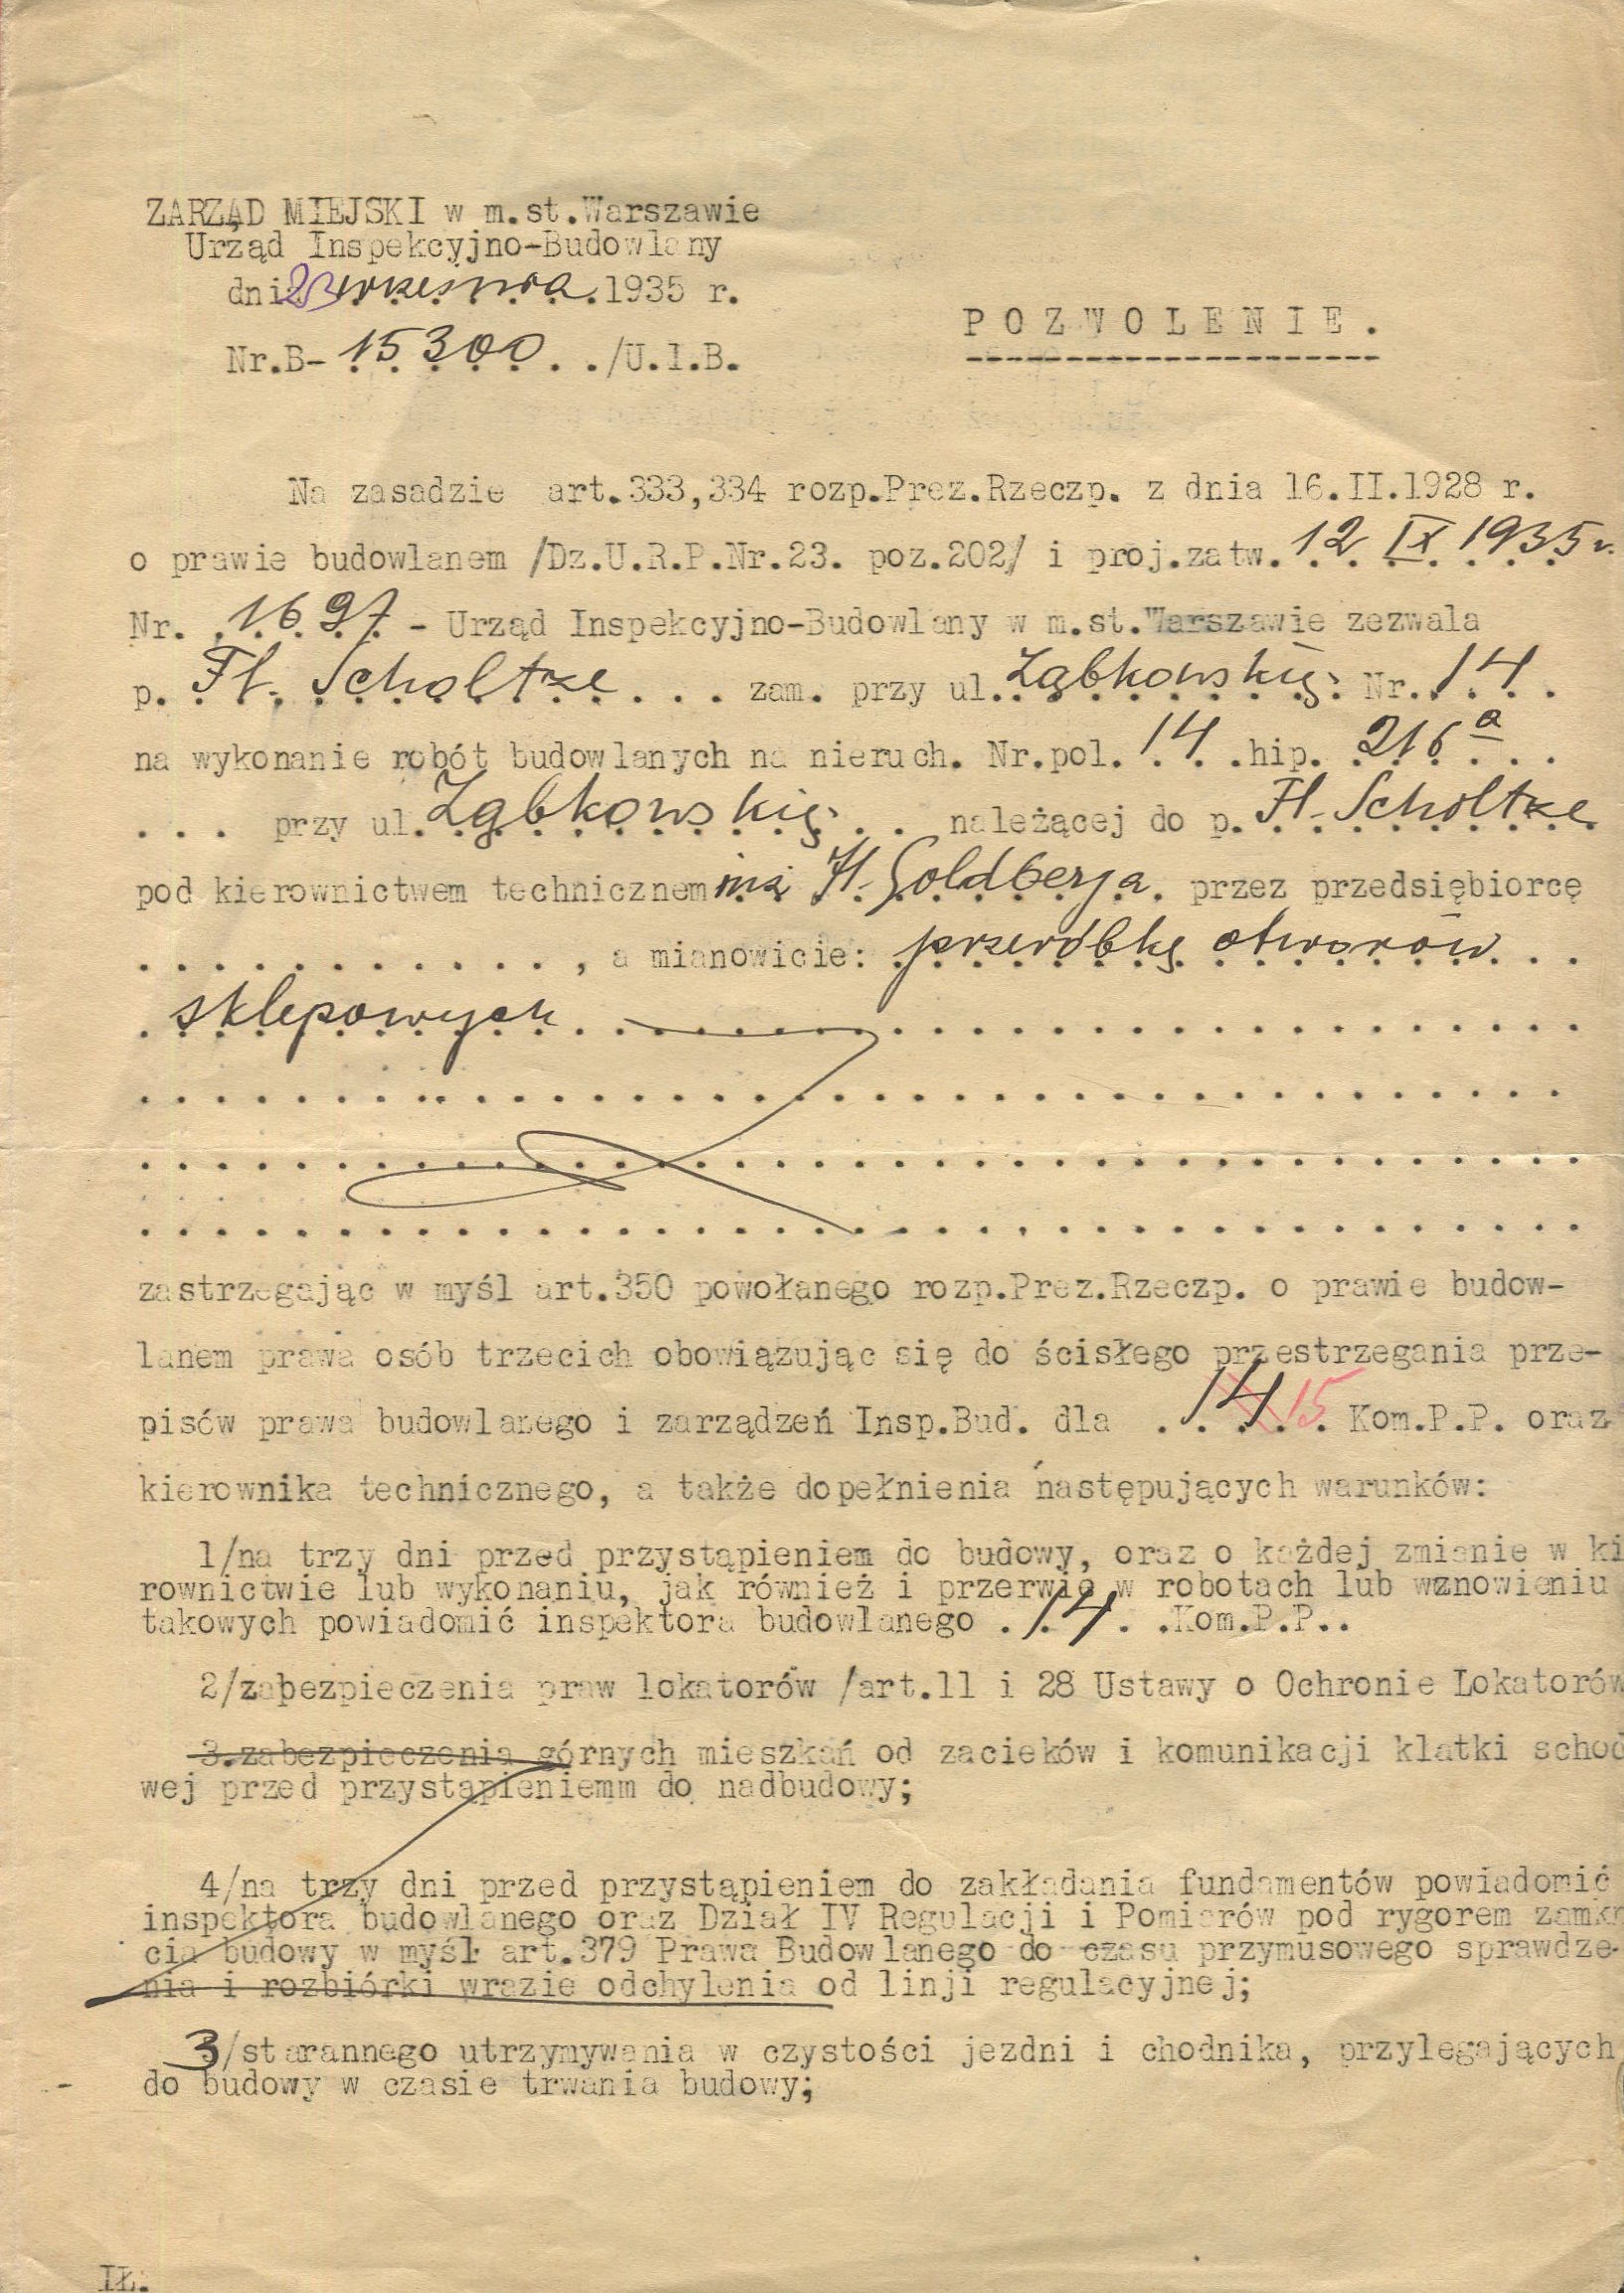 ZARZĄD MIEJSKI w m.st.Warszawie
Urząd Inspekcyjno-Budowlany
dnia 23 września 1935 r.
POZWOLENIE.
Nr.B- 15300 . ./U.I.B.
Na zasadzie art.333,334 rozp.Prez.Rzeczp. z dnia 16.II.1928 r.
o prawie budowlanem /Dz.U.R.P.Nr.23. poz.202/ i proj.zatw. 12 IX 1935 r.
Nr. 1697 - Urząd Inspekcyjno-Budowlany w m.st.Warszawie zezwala
p. Fl. Scholtze . . . zam. przy ul. Ząbkowskiej Nr. 14 .
na wykonanie robót budowlanych na nieruch. Nr.pol. 14 .hip. 216a . .
. . . przy ul. Ząbkowskiej . . należącej do p. Fl. Scholtze
pod kierownictwem technicznem inż H. Goldberga. przez przedsiębiorcę
. . . . . . . . . . . , a mianowicie: przeróbkę otworów . . .
sklepowych
zastrzegając w myśl art.350 powołanego rozp.Prez.Rzeczp. o prawie budow-
lanem prawa osób trzecich obowiązując się do ścisłego przestrzegania prze-
pisów prawa budowlanego i zarządzeń Insp.Bud. dla . 14 15 . Kom.P.P. oraz
kierownika technicznego, a także dopełnienia następujących warunków:
1/na trzy dni przed przystąpieniem do budowy, oraz o każdej zmianie w ki
rownictwie lub wykonaniu, jak również i przerwie w robotach lub wznowieniu
takowych powiadomić inspektora budowlanego . 14 . .Kom.P.P..
2/zabezpieczenia praw lokatorów /art.11 i 28 Ustawy o Ochronie Lokatorów
3.zabezpieczenia górnych mieszkań od zacieków i komunikacji klatki schod
wej przed przystąpieniemm do nadbudowy;
4/na trzy dni przed przystąpieniem do zakładania fundamentów powiadomić
inspektora budowlanego oraz Dział IV Regulacji i Pomiarów pod rygorem zamkn
cia budowy w myśl art.379 Prawa Budowlanego do czasu przymusowego sprawdze-
nia i rozbiórki wrazie odchylenia od linji regulacyjnej;
3/starannego utrzymywania w czystości jezdni i chodnika, przylegających
do budowy w czasie trwania budowy;
IŁ.